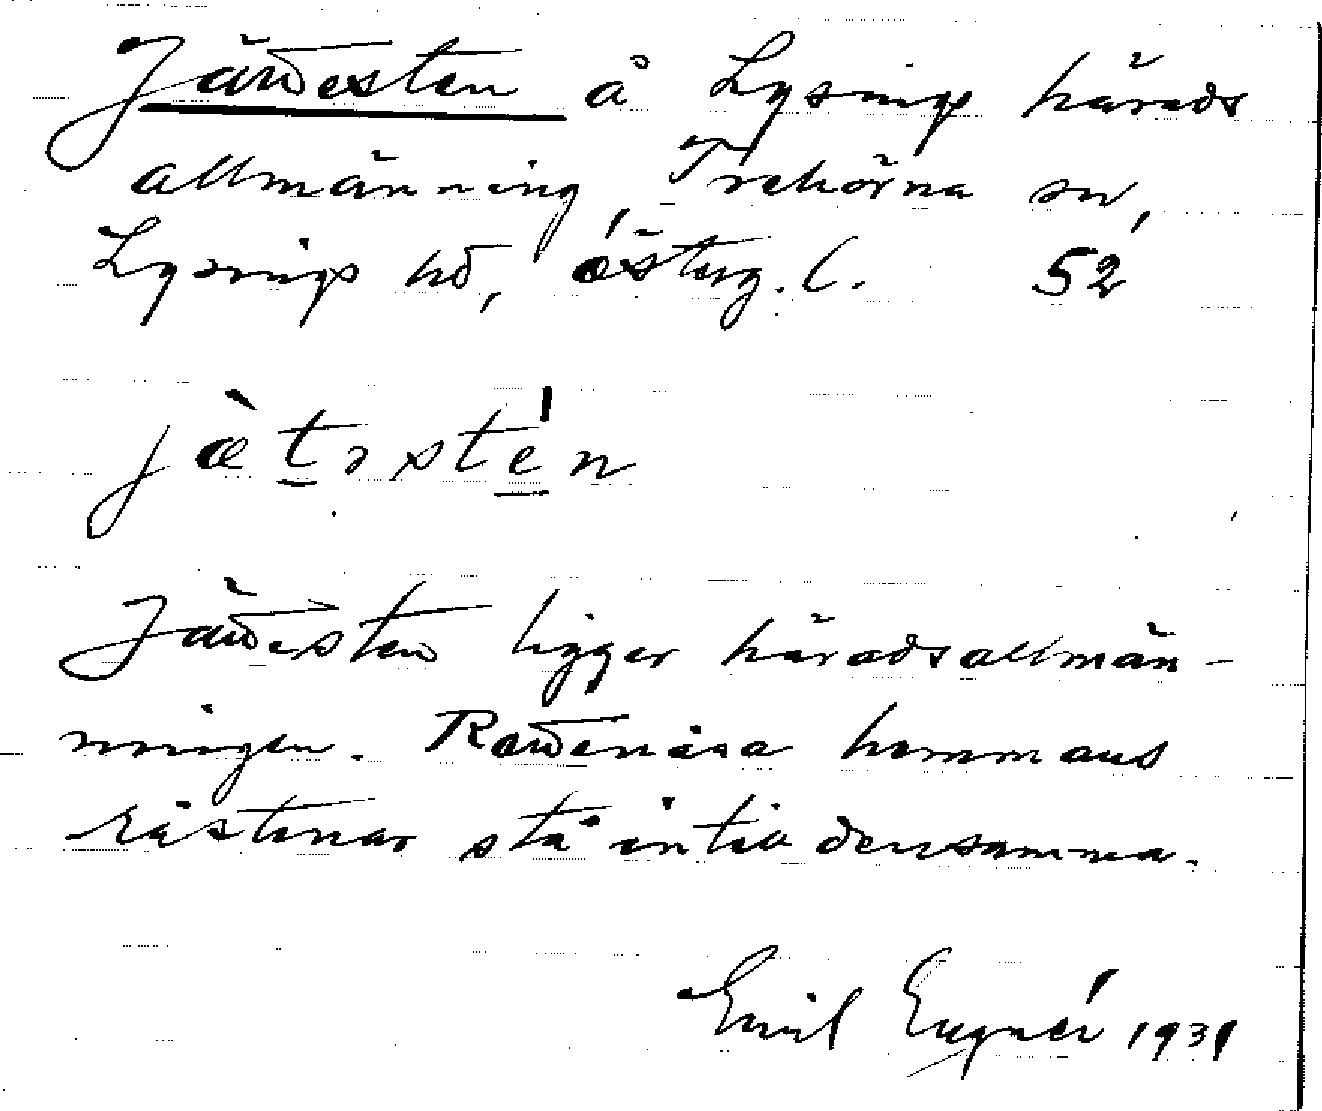 Jättesten å Lysings härads
allmänning, Trehörna sn,
Lysings hd, Österg. l. 52
jætəsten
Jättesten ligger häradsallmän-
ningen. hemmans
råstenar stå intill densamma.
Emil 1931